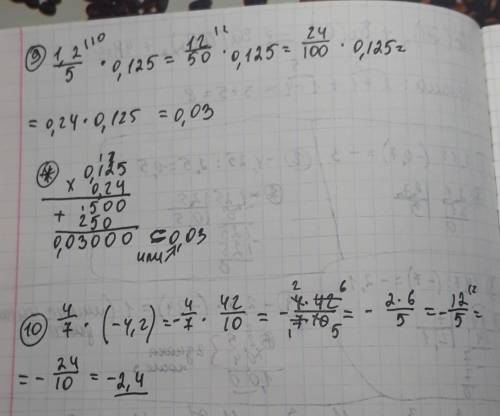 9) 1,2/5 |·10 · 0,125 = 12/50 |·2 · 0,125 = 24/100 · 0,125 =
= 0,24 · 0,125 = 0,03
*) 0,125
× 0,24
+ 500
250
0,03000 = 0,03
или
10) 4/7 · (-4,2) = -4/7 · 42/10 = - 4·42/7·10 = - 2·6/5 = - 12/5 |·2 =
= - 24/10 = -2,4